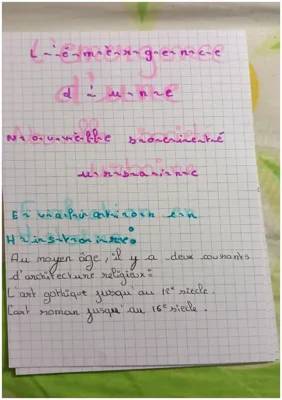 L'émergence
d'une
Nouvelle société
urbaine
Evaluation en
Histoire:
Au moyen âge, il y a deux courants
d'architecture religieux:
L'art gothique jusqu'au 12e siecle.
L'art roman jusqu'au 16e siecle.